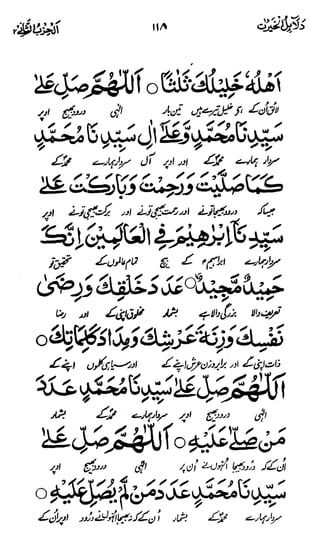 دلائل الخیرات ۱۱۸ الحزب الثانی
اَهْلُهٗ خَلِيْلُكَ ثَلٰثًا ○ اَللّٰهُمَّ صَلِّ عَلٰى
سَيِّدِنَا مُحَمَّدٍ وَّعَلٰٓى اٰلِ سَيِّدِنَا مُحَمَّدٍ
سردار ہمارے محمدؐ کے اور اوپر آل سردار ہمارے محمدؐ کے
كَمَا صَلَّيْتَ وَرَحِمْتَ وَبَارَكْتَ عَلٰى
جیساکہ درود بھیجا تونے اور رحمت بھیجی تونے اور برکت بھیجی تونے اوپر
سَيِّدِنَآ اِبْرٰهِيْمَ فِي الْعَالَمِيْنَ اِنَّكَ
سردار ہمارے ابراہیمؑ کے بیچ تمام عالموں کے تحقیق تو
حَمِيْدٌ مَّجِيْدٌ ○ عَدَدَ خَلْقِكَ وَرِضٰى
تعریف والا بزرگی والا ہے بشمار مخلوق اپنی کے اور رضا
نَفْسِكَ وَزِنَةَ عَرْشِكَ وَمِدَادَ كَلِمَاتِكَ ○
ذات اپنی کے اور برابر وزن عرش اپنے کے اور سیاہی کلموں اپنے کے
اَللّٰهُمَّ صَلِّ عَلٰى سَيِّدِنَا مُحَمَّدٍ عَدَدَ
الٰہی درود بھیج اوپر سردار ہمارے محمدؐ کے بشمار
مَنْ صَلّٰى عَلَيْهِ ○ اَللّٰهُمَّ صَلِّ عَلٰى
اُن کے کہ درود بھیجا اُنہوں نے اُن پر الٰہی درود بھیج اوپر
سَيِّدِنَا مُحَمَّدٍ عَدَدَ مَنْ لَّمْ يُصَلِّ عَلَيْهِ ○
سردار ہمارے محمدؐ کے بشمار اُن کے کہ نہ بھیجا اُنہوں نے درود اوپر اُن کے